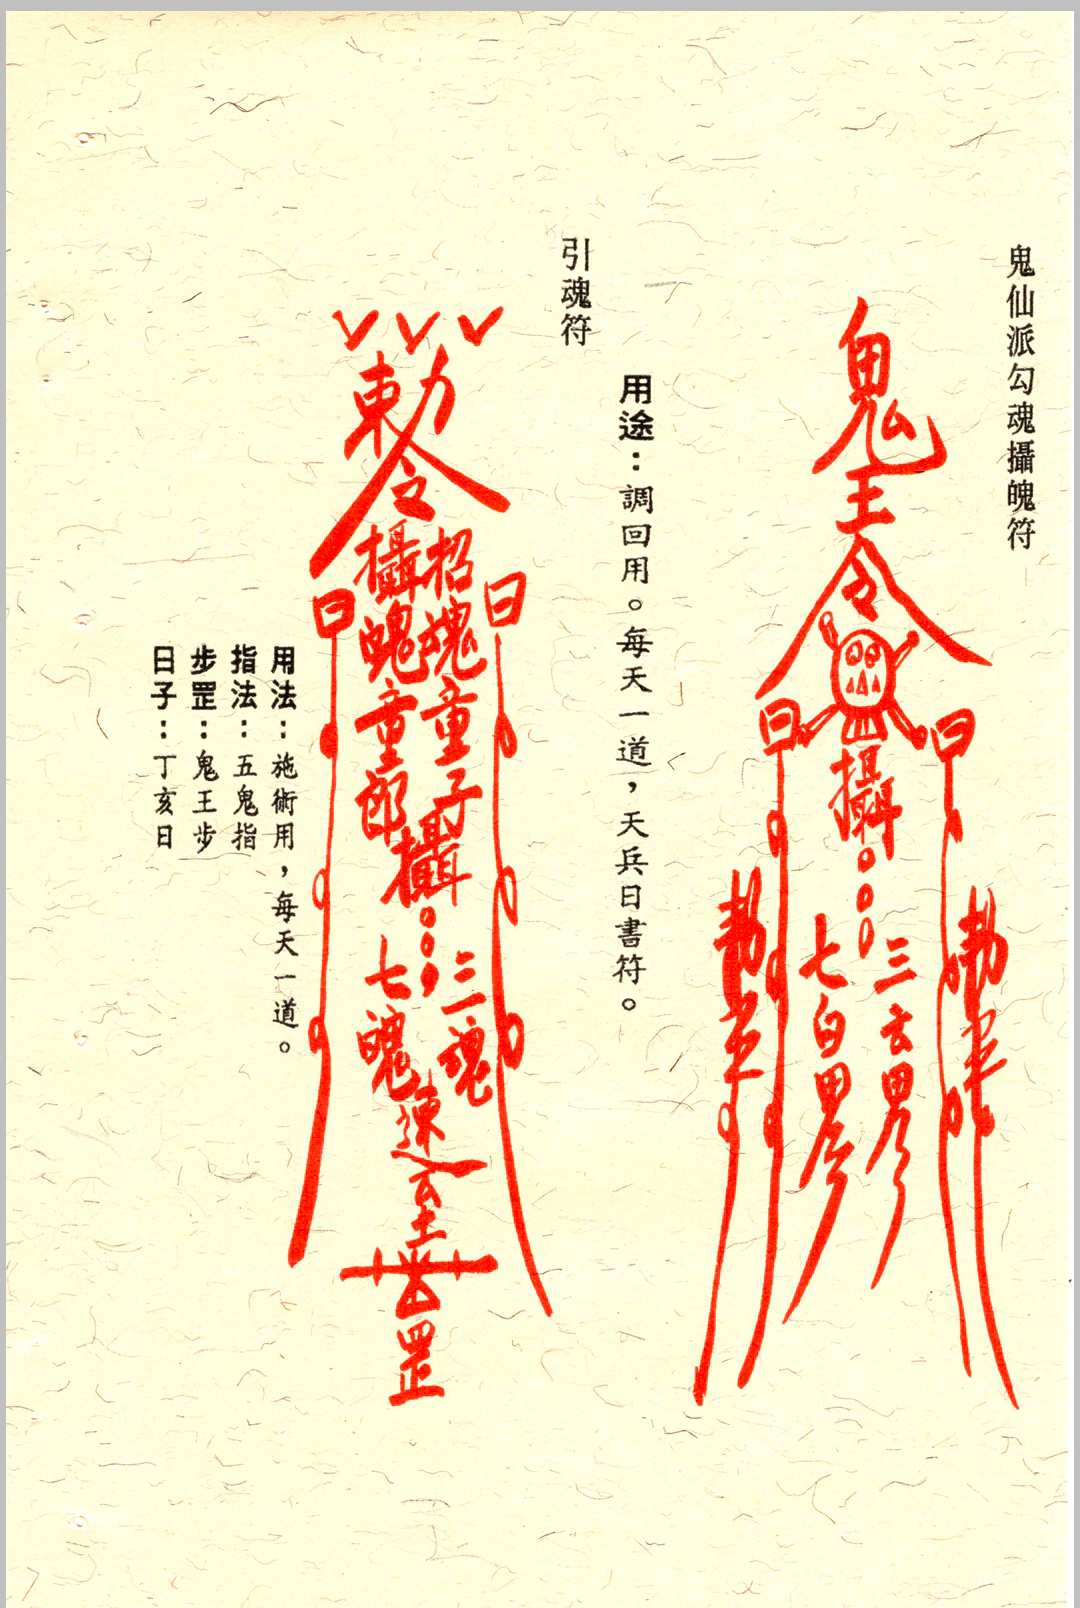 鬼仙派勾魂攝魄符
鬼王令
攝
三云鬼
七白鬼
用途：調回用。每天一道，天兵日書符。
引魂符
敕令
招魂童子
攝魄童郎
攝
三魂
七魄
速至
罡
用法：施術用，每天一道。
指法：五鬼指
步罡：鬼王步
日子：丁亥日